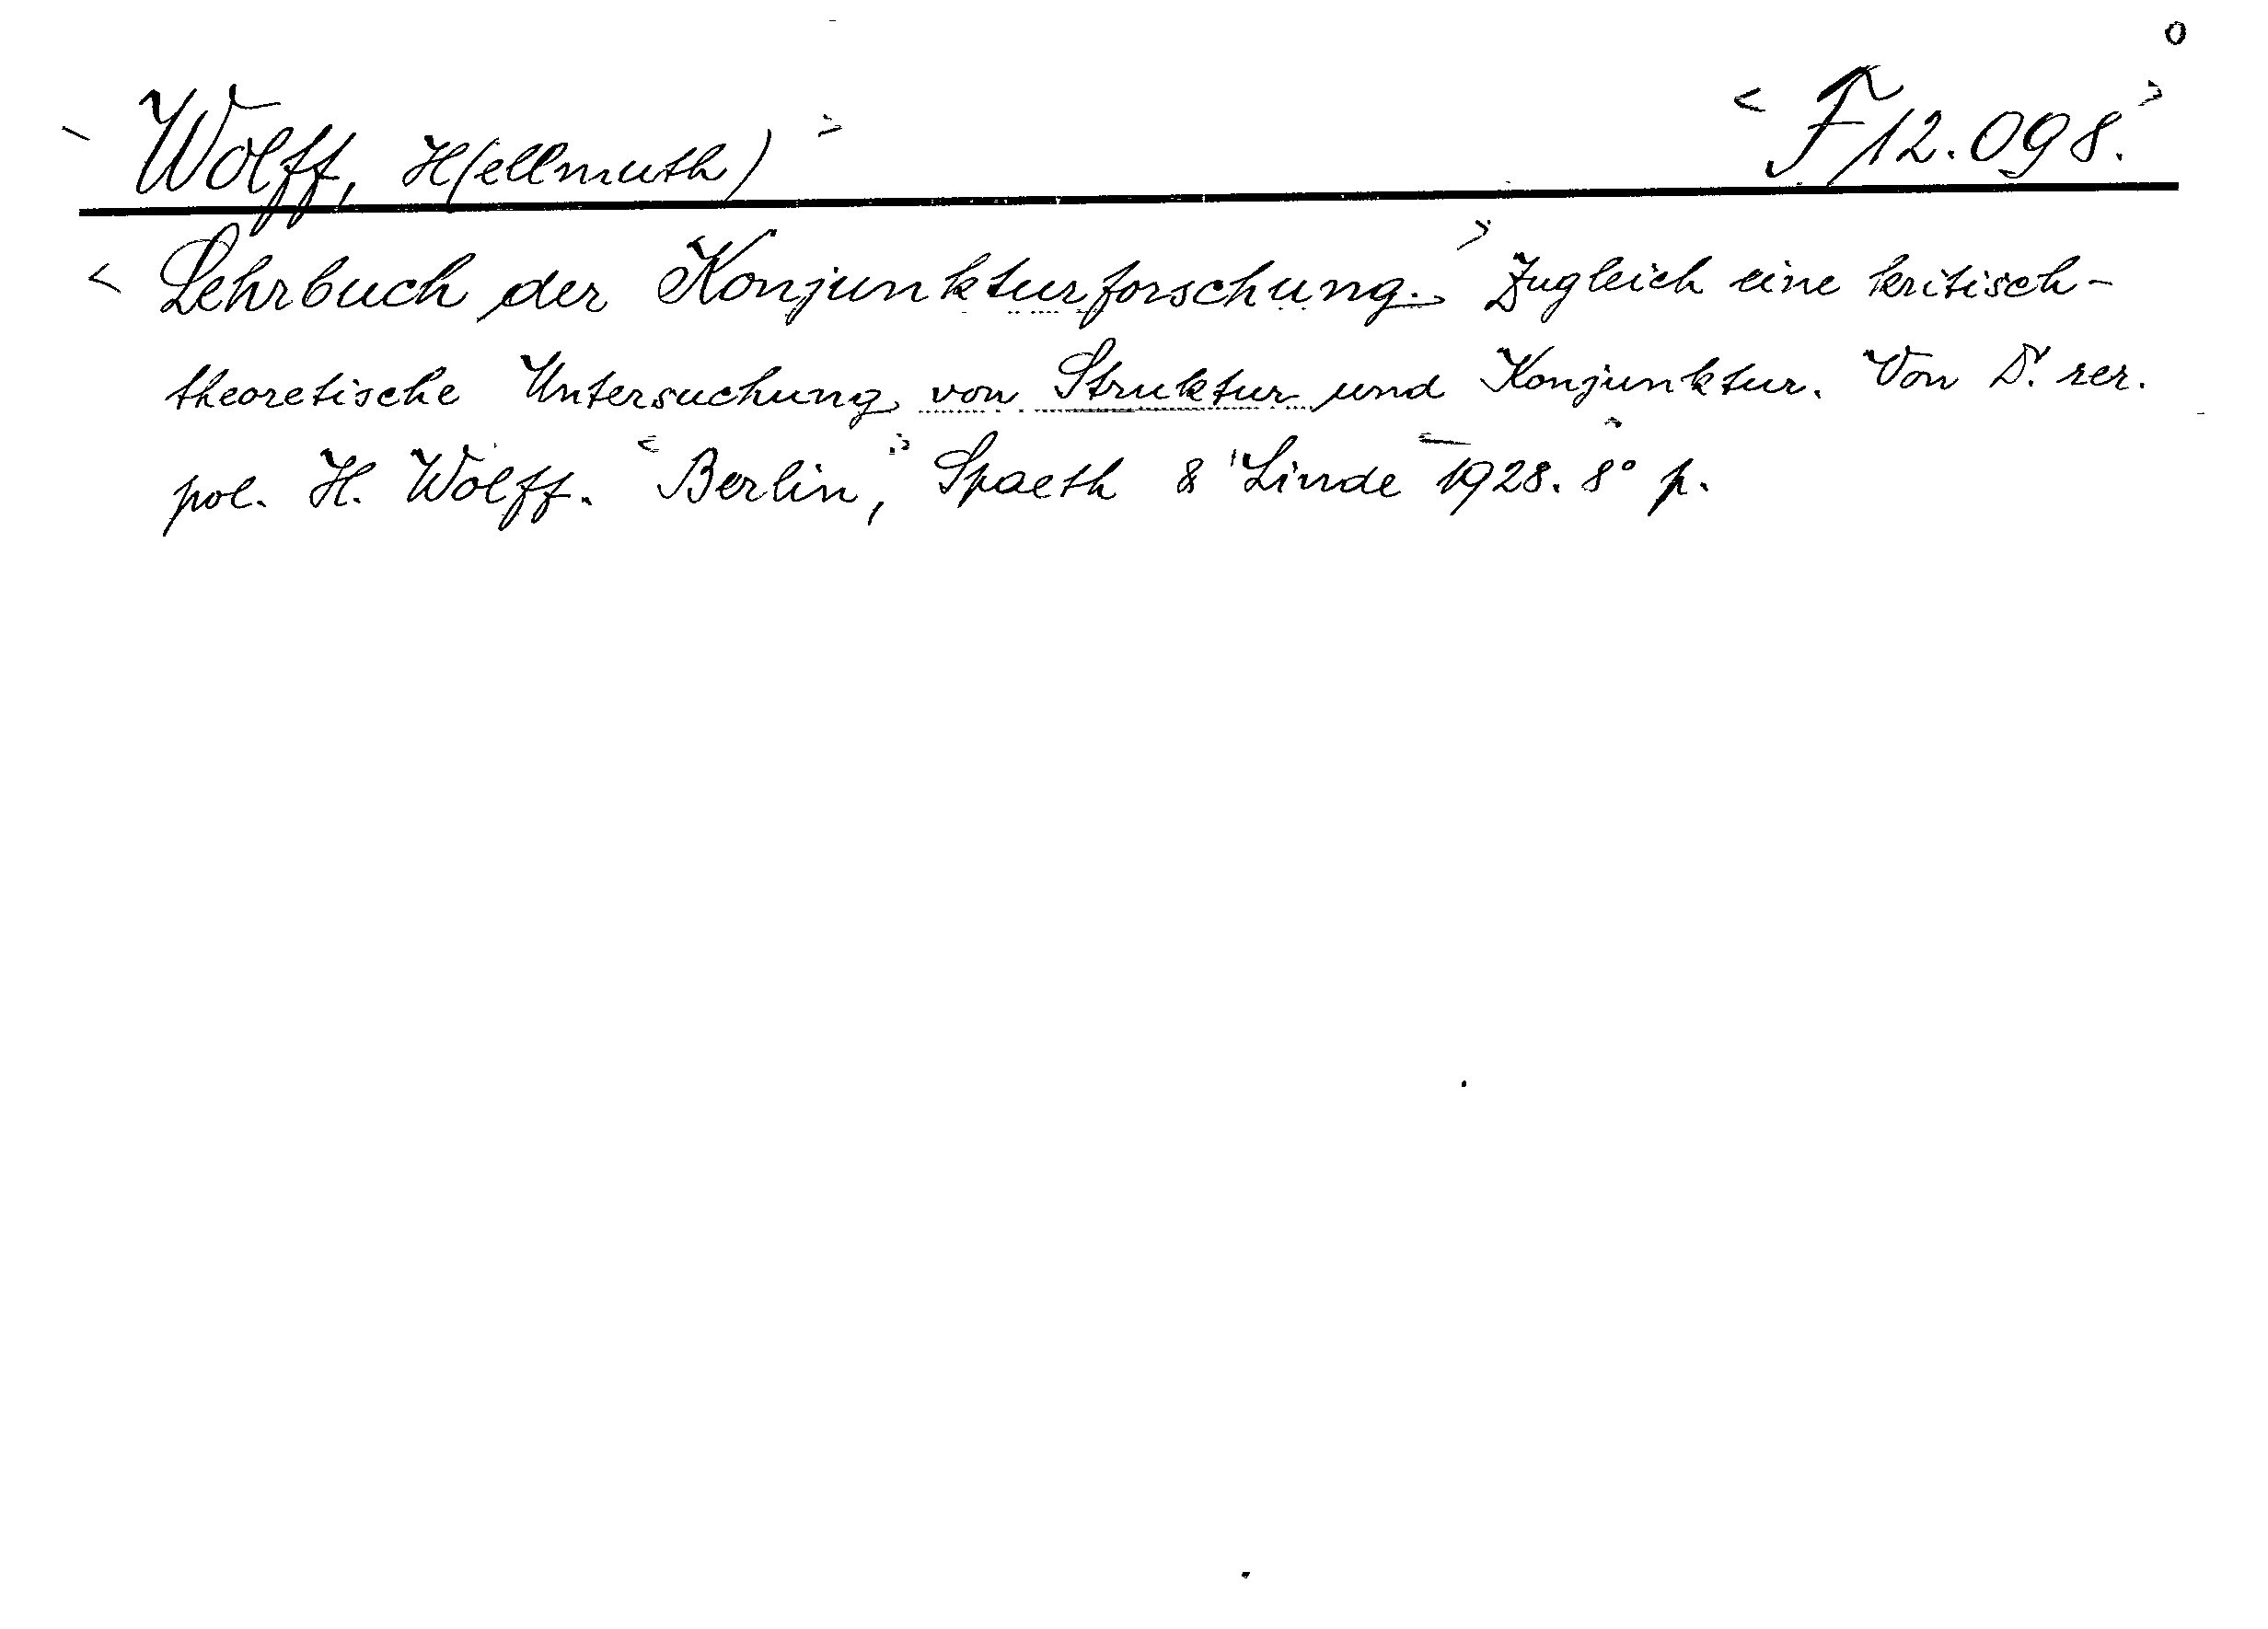 Wolff, H(ellmuth) F 12.098.
Lehrbuch der Konjunkturforschung. Zugleich eine kritisch-
theoretische Untersuchung von Struktur und Konjunktur. Von Dr. rer.
pol. H. Wolff. Berlin, Spaeth & Linde 1928. 8° p.